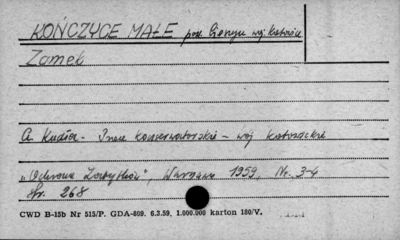 KOŃCZYCE MAŁE pow. Cieszyn woj. Katowice
Zamek
A. Kudła - Prace konserwatorskie - woj. katowickie
"Ochrona Zabytków", Warszawa 1959, Nr. 3-4
str. 268
CWD B-15b Nr 515/P. GDA-809. 6.3.59. 1.000.000 karton 180/V.